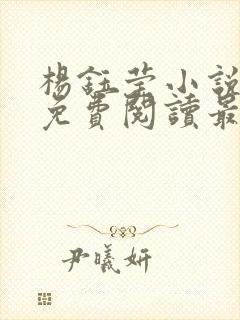 楊鈺瑩小說
免費閱讀最
尹曦妍